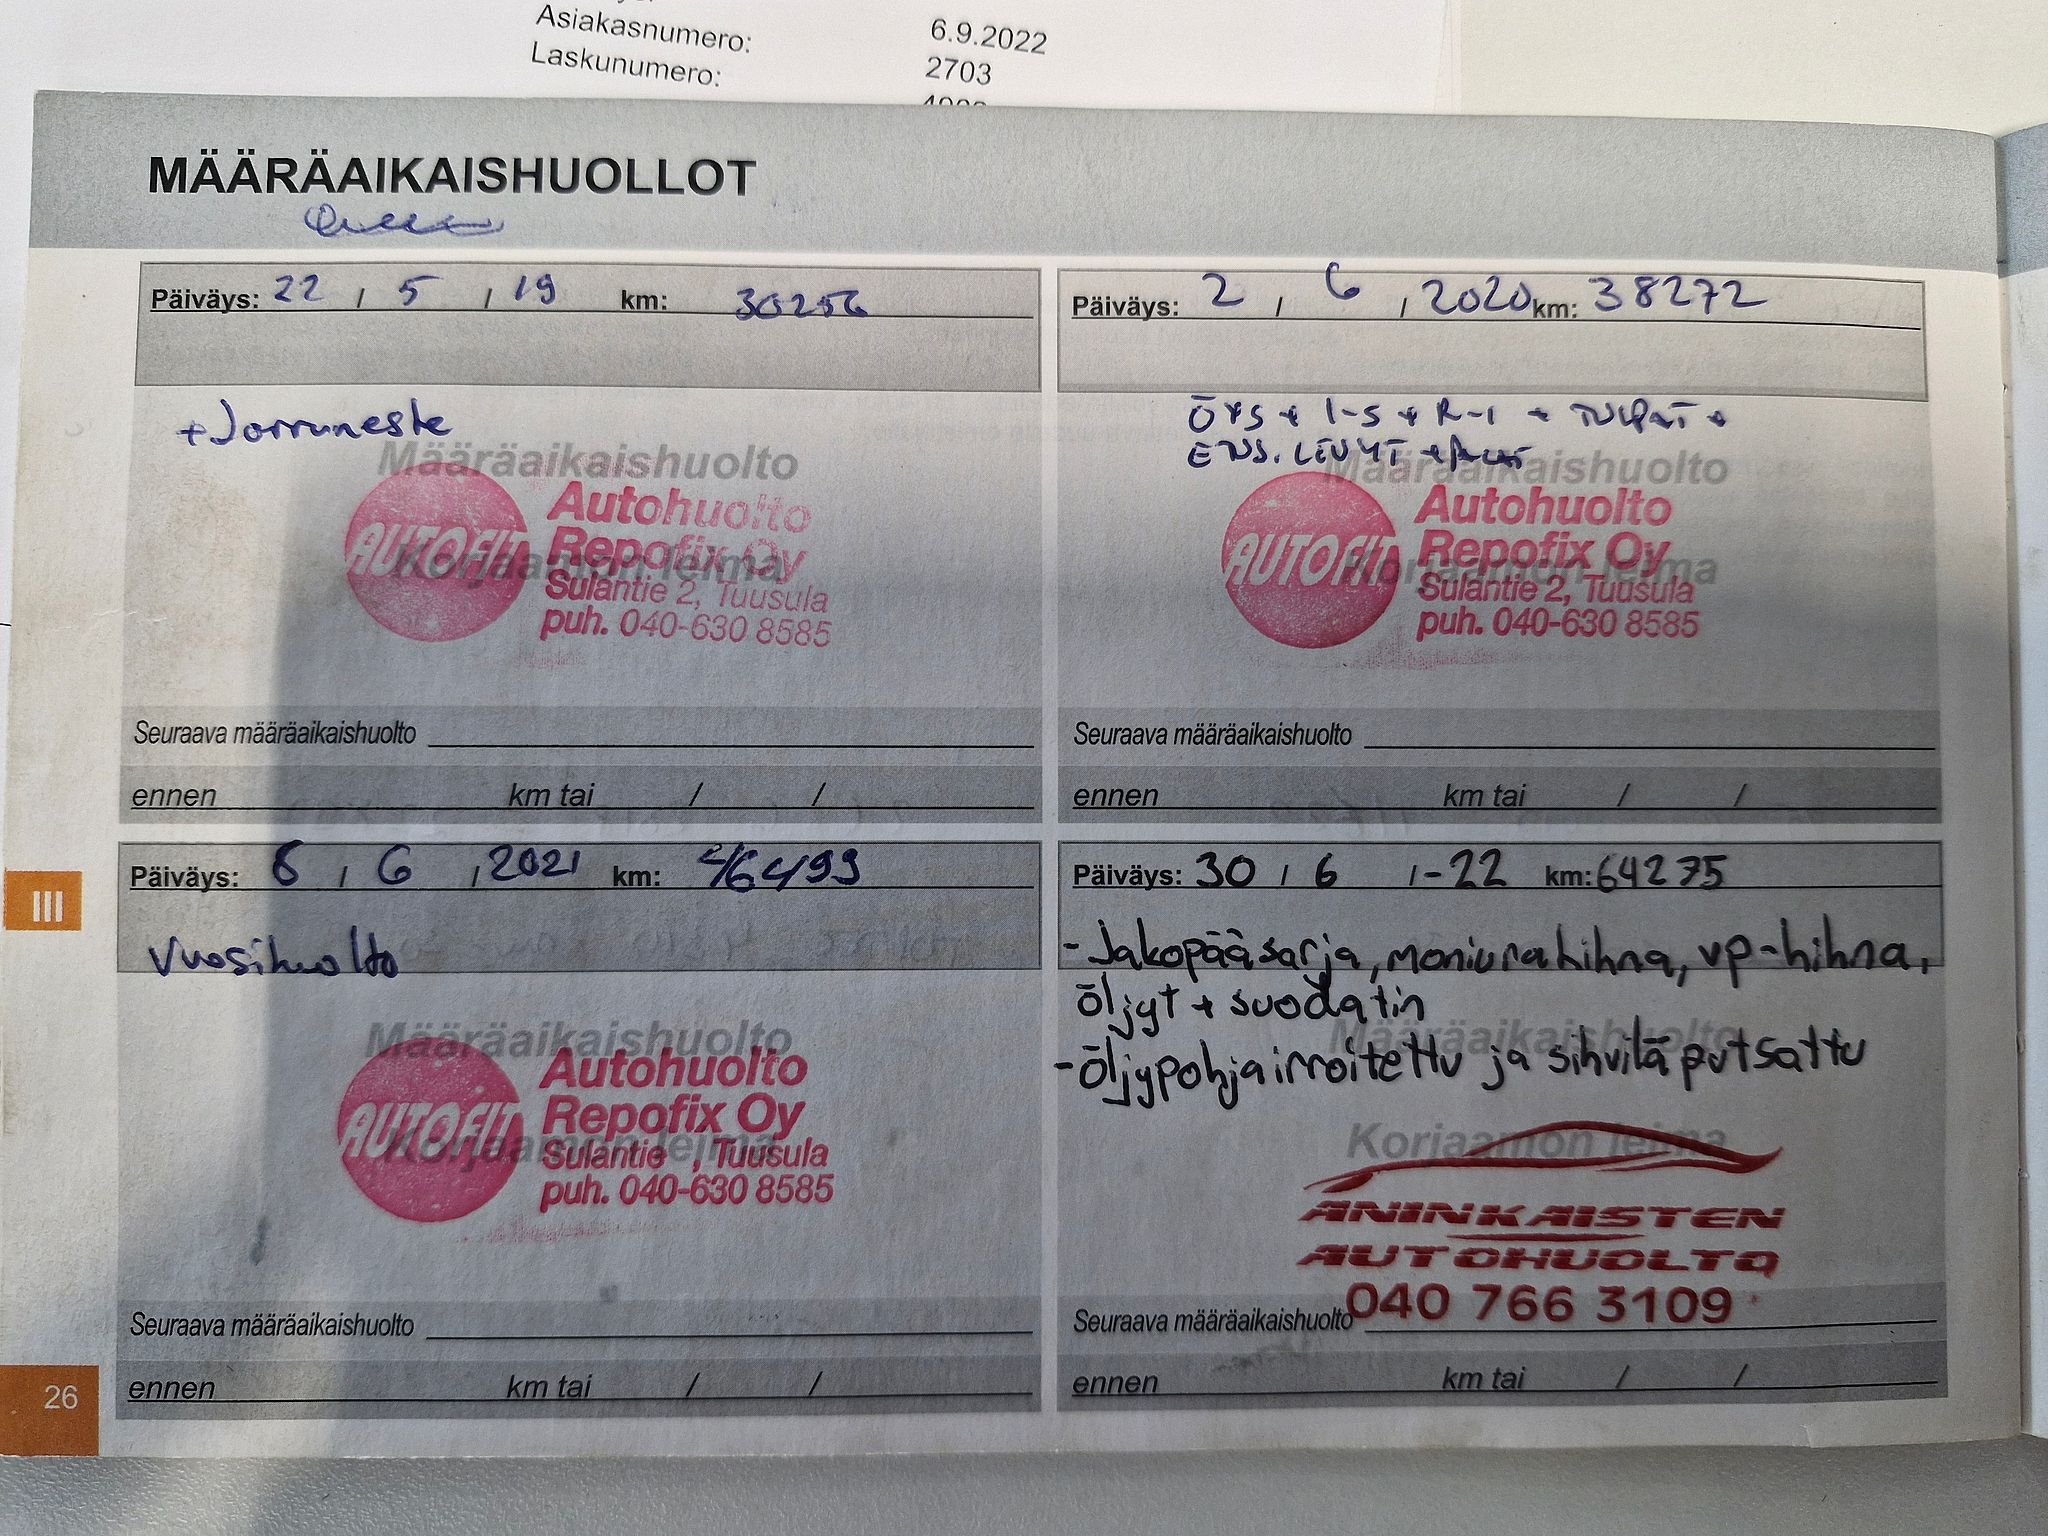 Asiakasnumero: 6.9.2022
Laskunumero: 2703
MÄÄRÄAIKAISHUOLLOT
Päiväys: 22 / 5 / 19 km: 30256
+Jarruneste
Määräaikaishuolto
Korjaamon leima
AUTOFIT
Autohuolto
Repofix Oy
Sulantie 2, Tuusula
puh. 040-630 8585
Seuraava määräaikaishuolto
ennen km tai / /
Päiväys: 2 / 6 / 2020 km: 38272
ÖYS + I-S + R-I + TULPAT +
ENS. LEVYT +
Määräaikaishuolto
Korjaamon leima
AUTOFIT
Autohuolto
Repofix Oy
Sulantie 2, Tuusula
puh. 040-630 8585
Seuraava määräaikaishuolto
ennen km tai / /
Päiväys: 8 / 6 / 2021 km: 46499
Vuosihuolto
Määräaikaishuolto
Korjaamon leima
AUTOFIT
Autohuolto
Repofix Oy
Sulantie , Tuusula
puh. 040-630 8585
Seuraava määräaikaishuolto
ennen km tai / /
Päiväys: 30 / 6 / -22 km: 64275
- Jakopääsarja, moniurahihna, vp-hihna,
öljyt + suodatin
- öljypohja irroitettu ja sihvilä putsattu
Määräaikaishuolto
Korjaamon leima
ANINKAISTEN
AUTOHUOLTO
040 766 3109
Seuraava määräaikaishuolto
ennen km tai / /
III
26